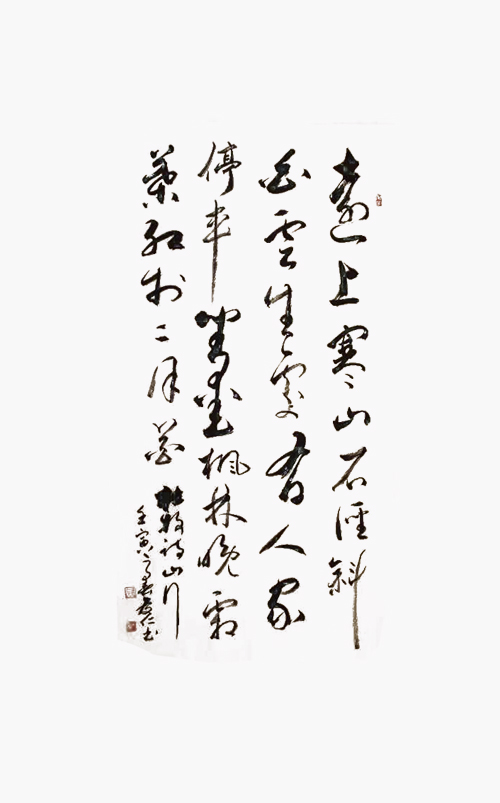 遠上寒山石徑斜
白雲生處有人家
停車坐愛楓林晚霜
葉紅於二月花
杜牧詩山行
壬寅 仁書